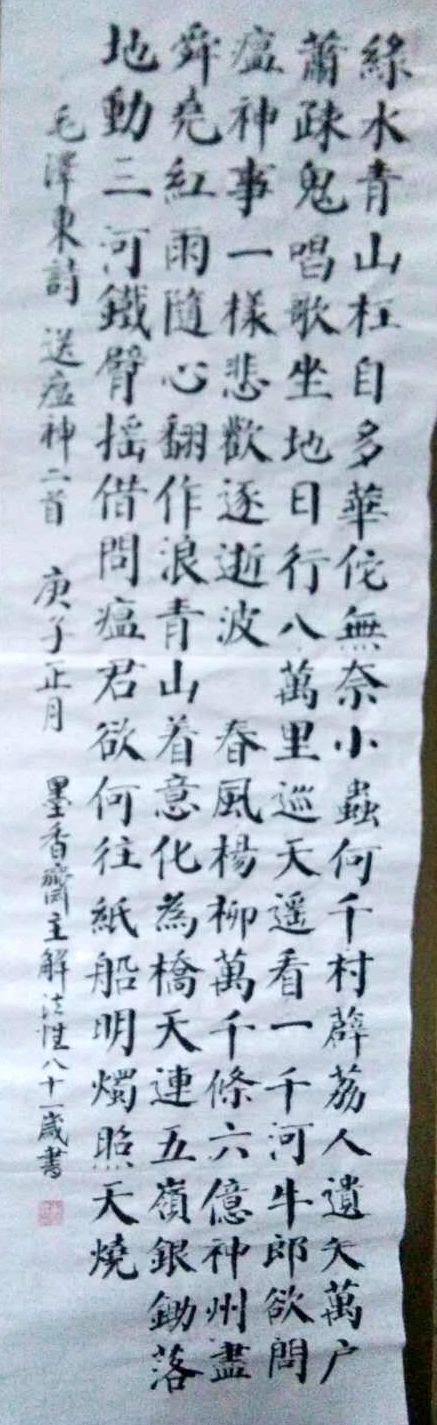 綠水青山枉自多華佗無奈小蟲何千村薜荔人遺矢萬户
蕭疎鬼唱歌坐地日行八萬里巡天遥看一千河牛郎欲問
瘟神事一樣悲歡逐逝波 春風楊柳萬千條六億神州盡
舜堯紅雨隨心翻作浪青山着意化為橋天連五嶺銀鋤落
地動三河鐵臂摇借問瘟君欲何往紙船明燭照天燒
毛澤東詩 送瘟神二首 庚子正月 墨香齋主解法性八十一歲書